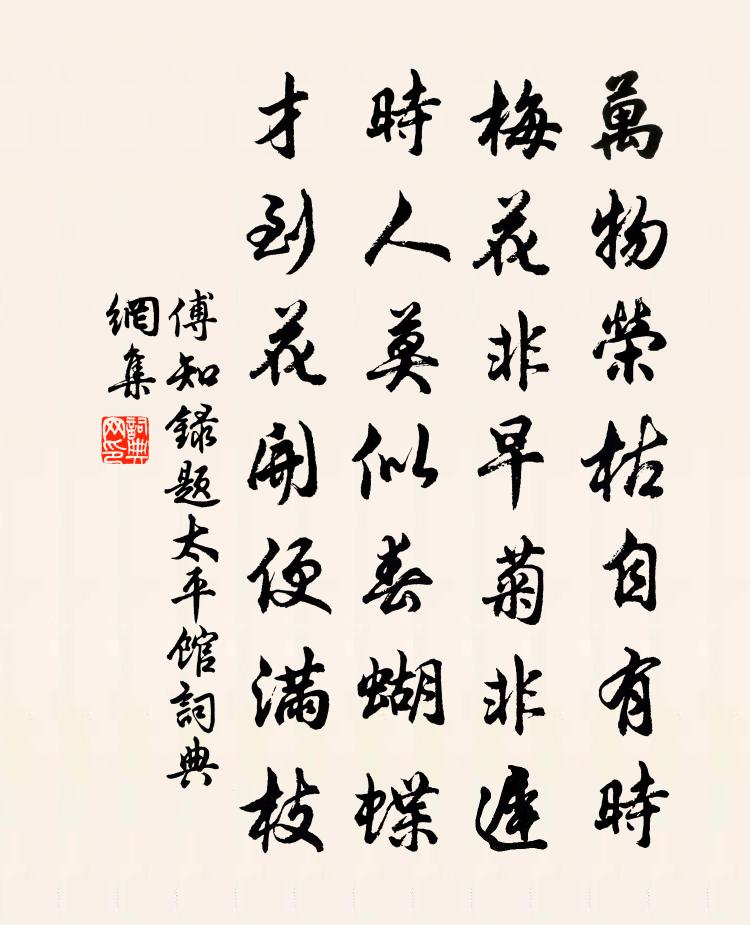 萬物榮枯自有時
梅花非早菊非遲
時人莫似春蝴蝶
才到花開便滿枝
傅知録題太平館詞典
網集
詞典
网印